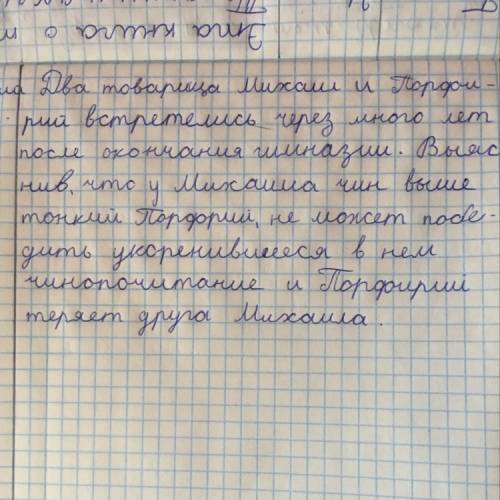 Эта книга о
ла Два товарища Михаил и Порфи-
рий встретелись через много лет
после окончания гимназии. Выяс
нив, что у Михаила чин выше
тонкий Порфорий, не может побе-
дить укоренившееся в нем
чинопочитание и Порфирий
теряет друга Михаила.